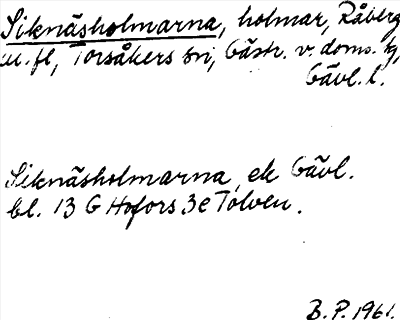 Siknäsholmarna, holmar, Råberg
m. fl, Torsåkers sn, Gästr. v. doms. tg,
Gävl. l.
Siknäsholmarna, ek Gävl.
bl. 13 G Hofors 3e Tolven.
B.P. 1961.